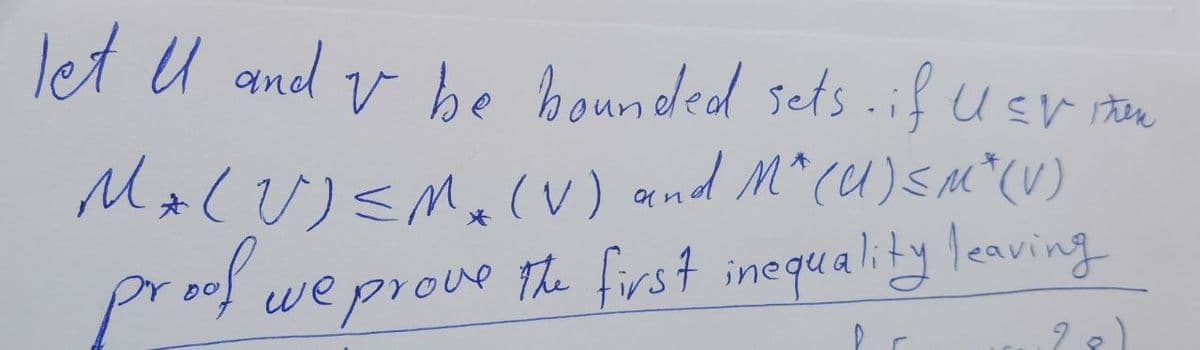 let U and V be bounded sets. if U ≤ V then
M*(U) ≤ M*(V) and M*(U) ≤ M*(V)
proof we prove the first inequality leaving